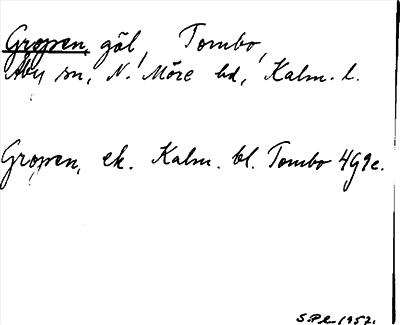 Gropen, göl, Tombo,
Åby sn, N. Möre hd, Kalm. l.
Gropen, ek. Kalm. bl. Tombo 4G9e.
1957.